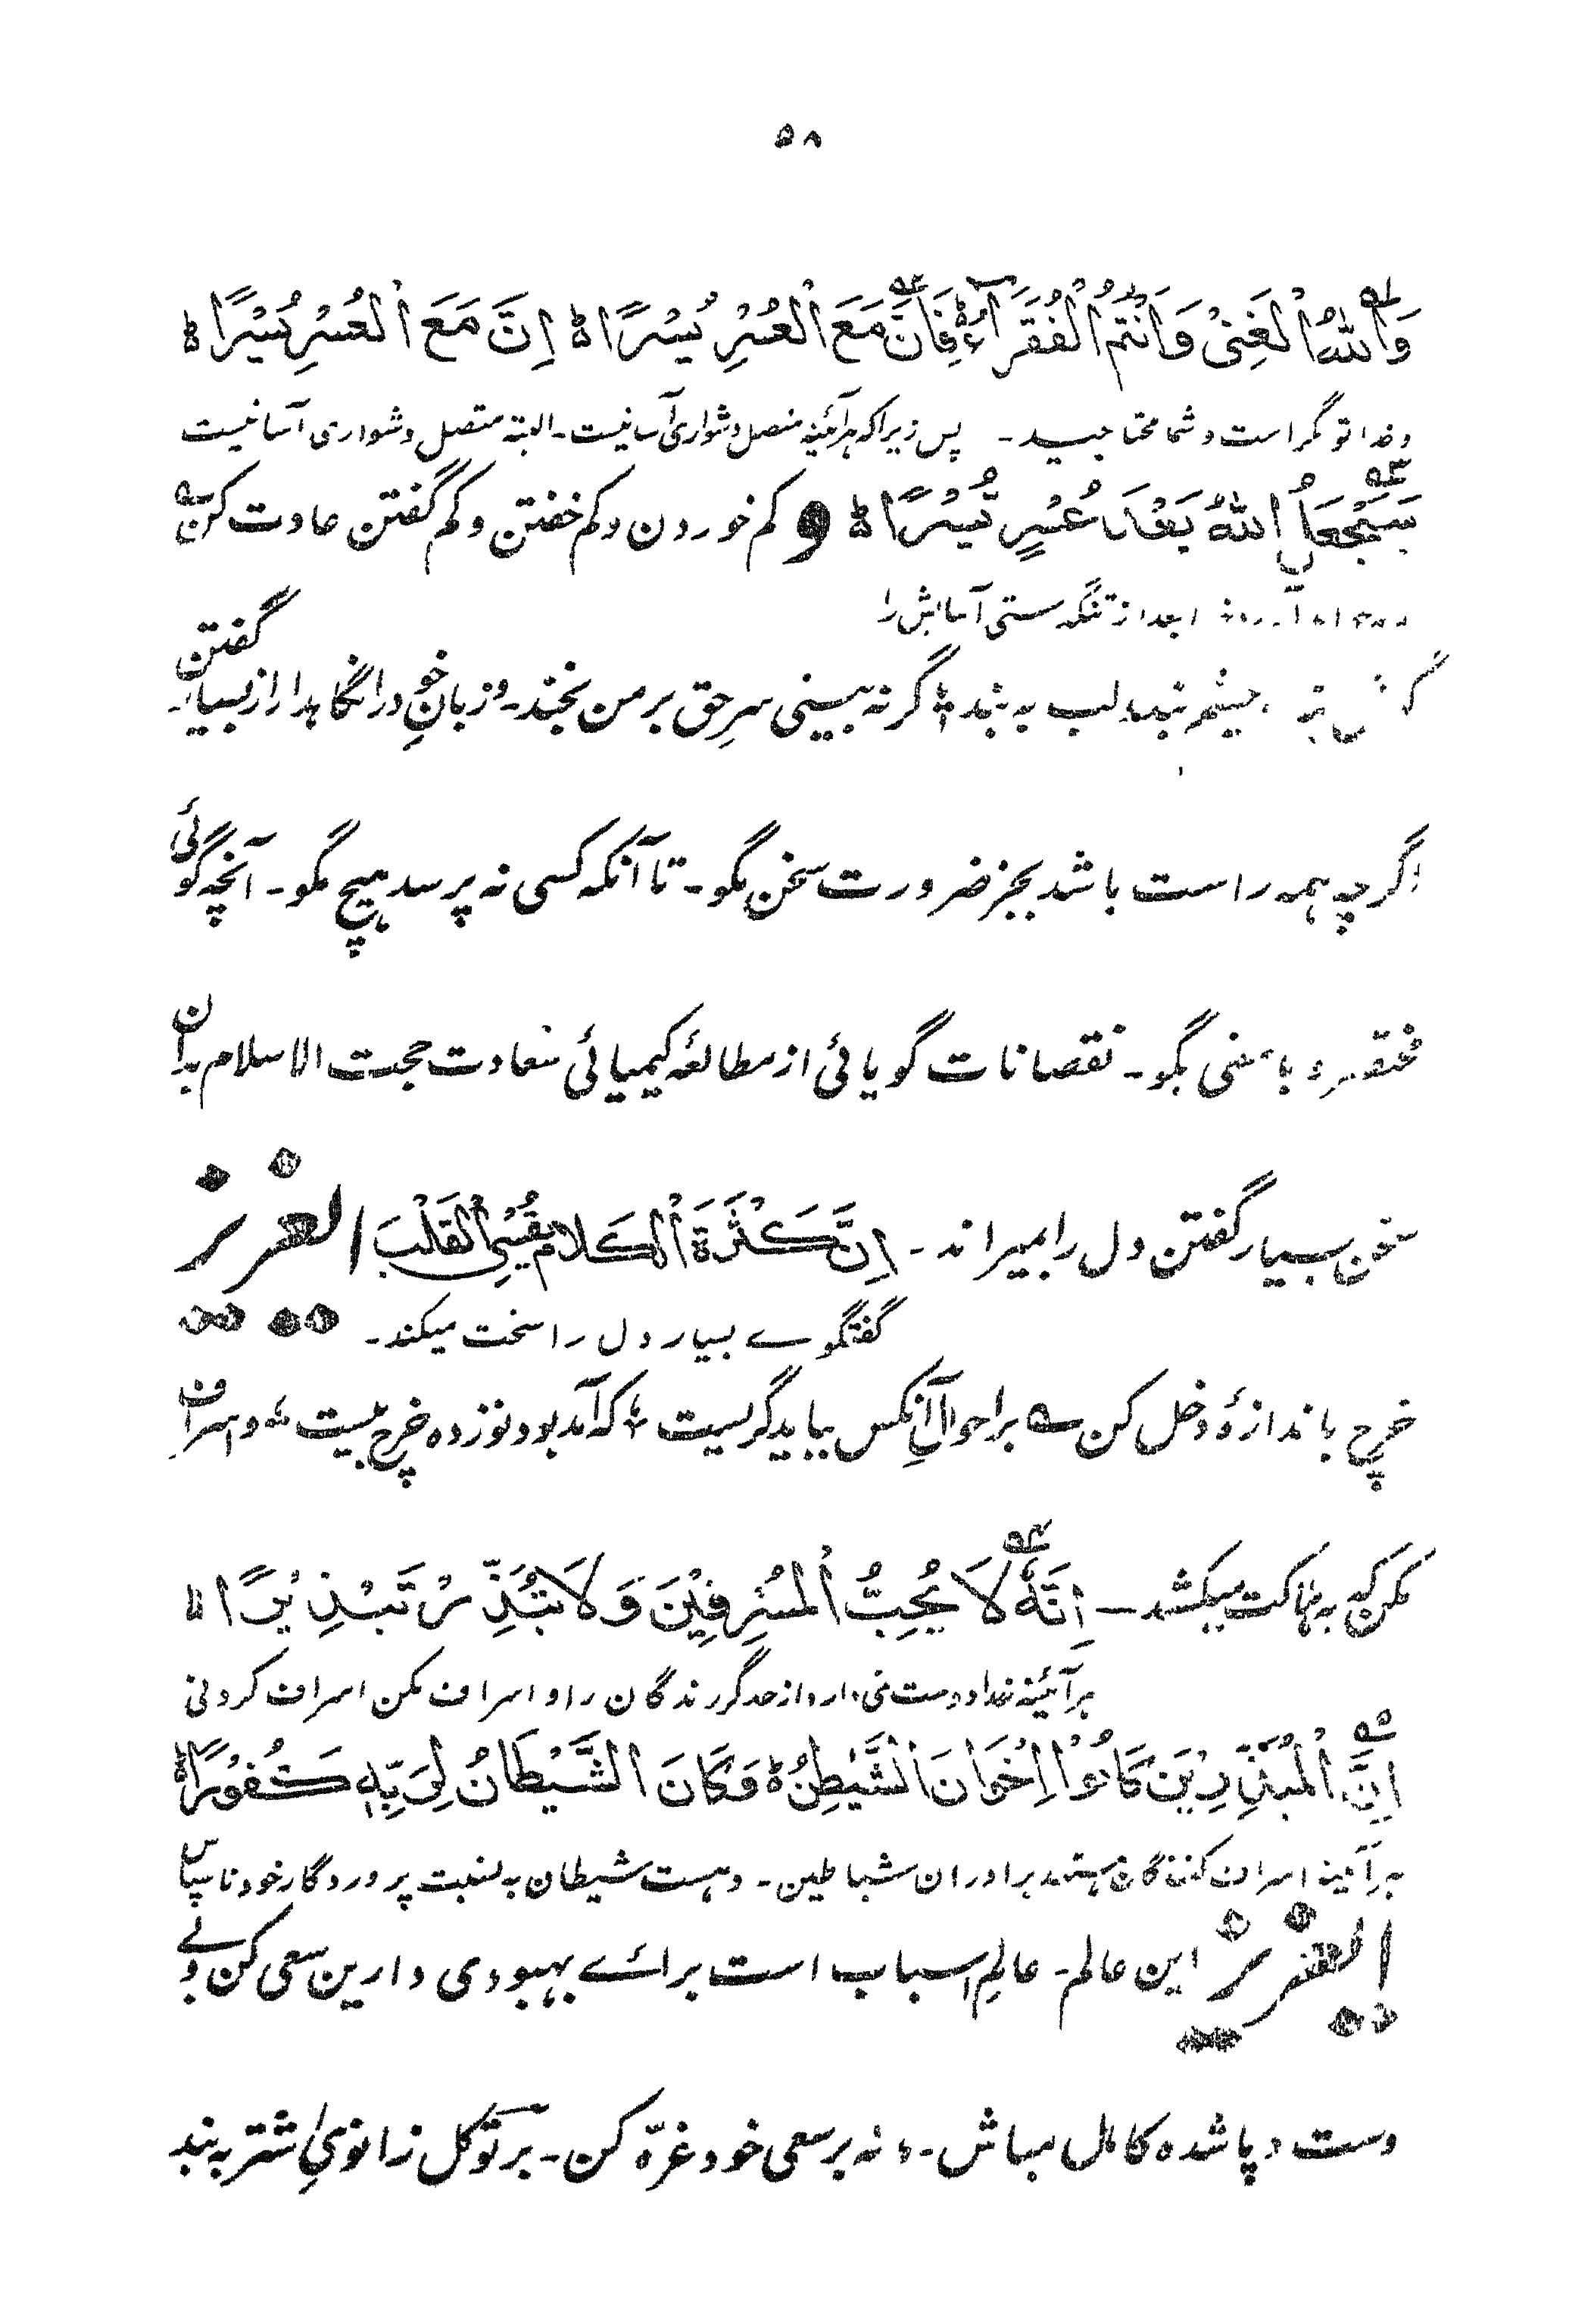 ۵۸
وَاللهُ الْغَنِیْ وَاَنْتُمُ الْفُقَرَآءُ ط فَاِنَّ مَعَ الْعُسْرِ یُسْرًا ط اِنَّ مَعَ الْعُسْرِ یُسْرًا ط
وخدا تونگر است و شما محتاجید ۔ پس زیراکه هرآئینه متصل دشواری آسانیست ۔ البته متصل دشواری آسانیست
سَیَجْعَلُ اللهُ بَعْدَ عُسْرٍ یُّسْرًا ط و کم خوردن و کم خفتن و کم گفتن عادت کن
بعد از تنگدستی آسایش را
چشم بند و لب به بند ؛ گر نه بینی سرِ حق بر من بخند ۔ و زبانِ خود را نگاهدار از بسیار گفتن
اگرچه همه راست باشد بجز ضرورت سخن مگو ۔ تا آنکه کسی نه پرسد هیچ مگو ۔ آنچه گوئی
مختصر و با معنی بگو ۔ نقصانات گویائی از مطالعهٔ کیمیائی سعادت حجت الاسلام بدان
سخن بسیار گفتن دل را میراند ۔ اِنَّ کَثْرَةَ الْکَلَامِ یُقْسِی الْقَلْبَ العزیز
گفتگوے بسیار دل را سخت میکند ۔
خرچ باندازهٔ دخل کن ؎ بر احوالِ آنکس بباید گریست ؛ که آمد بود نوزده خرچ بیست ؛ و اسراف
مکن که به هلاکت میکشد ـ اِنَّهٗ لَا یُحِبُّ الْمُسْرِفِیْنَ وَلَا تُبَذِّرْ تَبْذِیْرًا ط
هرآئینه خدا دوست نمی دارد از حد گزرندگان را و اسراف مکن اسراف کردنی
اِنَّ الْمُبَذِّرِیْنَ کَانُوْا اِخْوَانَ الشَّیٰطِیْنُ ط وَکَانَ الشَّیْطَانُ لِرَبِّهٖ کَفُوْرًا ط
هرآئینه اسراف کنندگان هستند برادران شیاطین ۔ و هست شیطان به نسبت پروردگار خود ناسپاس
العزیز این عالم ۔ عالمِ اسباب است برائے بهبودی دارین سعی کن و بے
دست و پا شده کاهل مباش ۔ و نه بر سعی خود غرّه کن ۔ بر توکل زانویِ شتر به بند